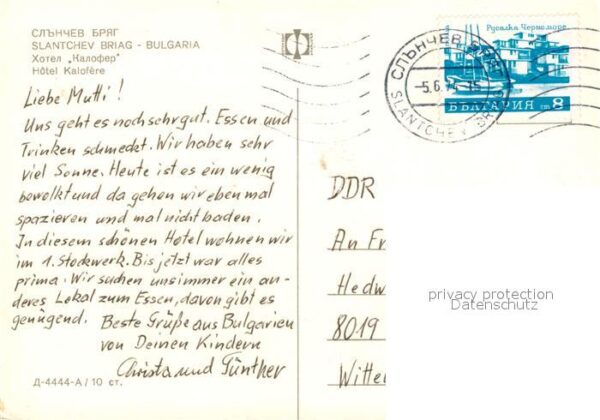 СЛЪНЧЕВ БРЯГ
SLANTCHEV BRIAG - BULGARIA
Хотел „Калофер"
Hôtel Kalofère
Liebe Mutti!
Uns geht es noch sehr gut. Essen und
Trinken schmeckt. Wir haben sehr
viel Sonne. Heute ist es ein wenig
bewolkt und da gehen wir eben mal
spazieren und mal nicht baden.
In diesem schönen Hotel wohnen wir
im 1. Stockwerk. Bis jetzt war alles
prima. Wir suchen uns immer ein an-
deres Lokal zum Essen, davon gibt es
genügend. Beste Grüße aus Bulgarien
von Deinen Kindern
Christa und Günther
Д-4444-А/10 ст.
Русалка Черно море
БЪЛГАРИЯ ст 8
СЛЪНЧЕВ БРЯГ
-5.6.
SLANTCHEV BR
DDR
An Fr
Hedw
8019
Witte
privacy protection
Datenschutz